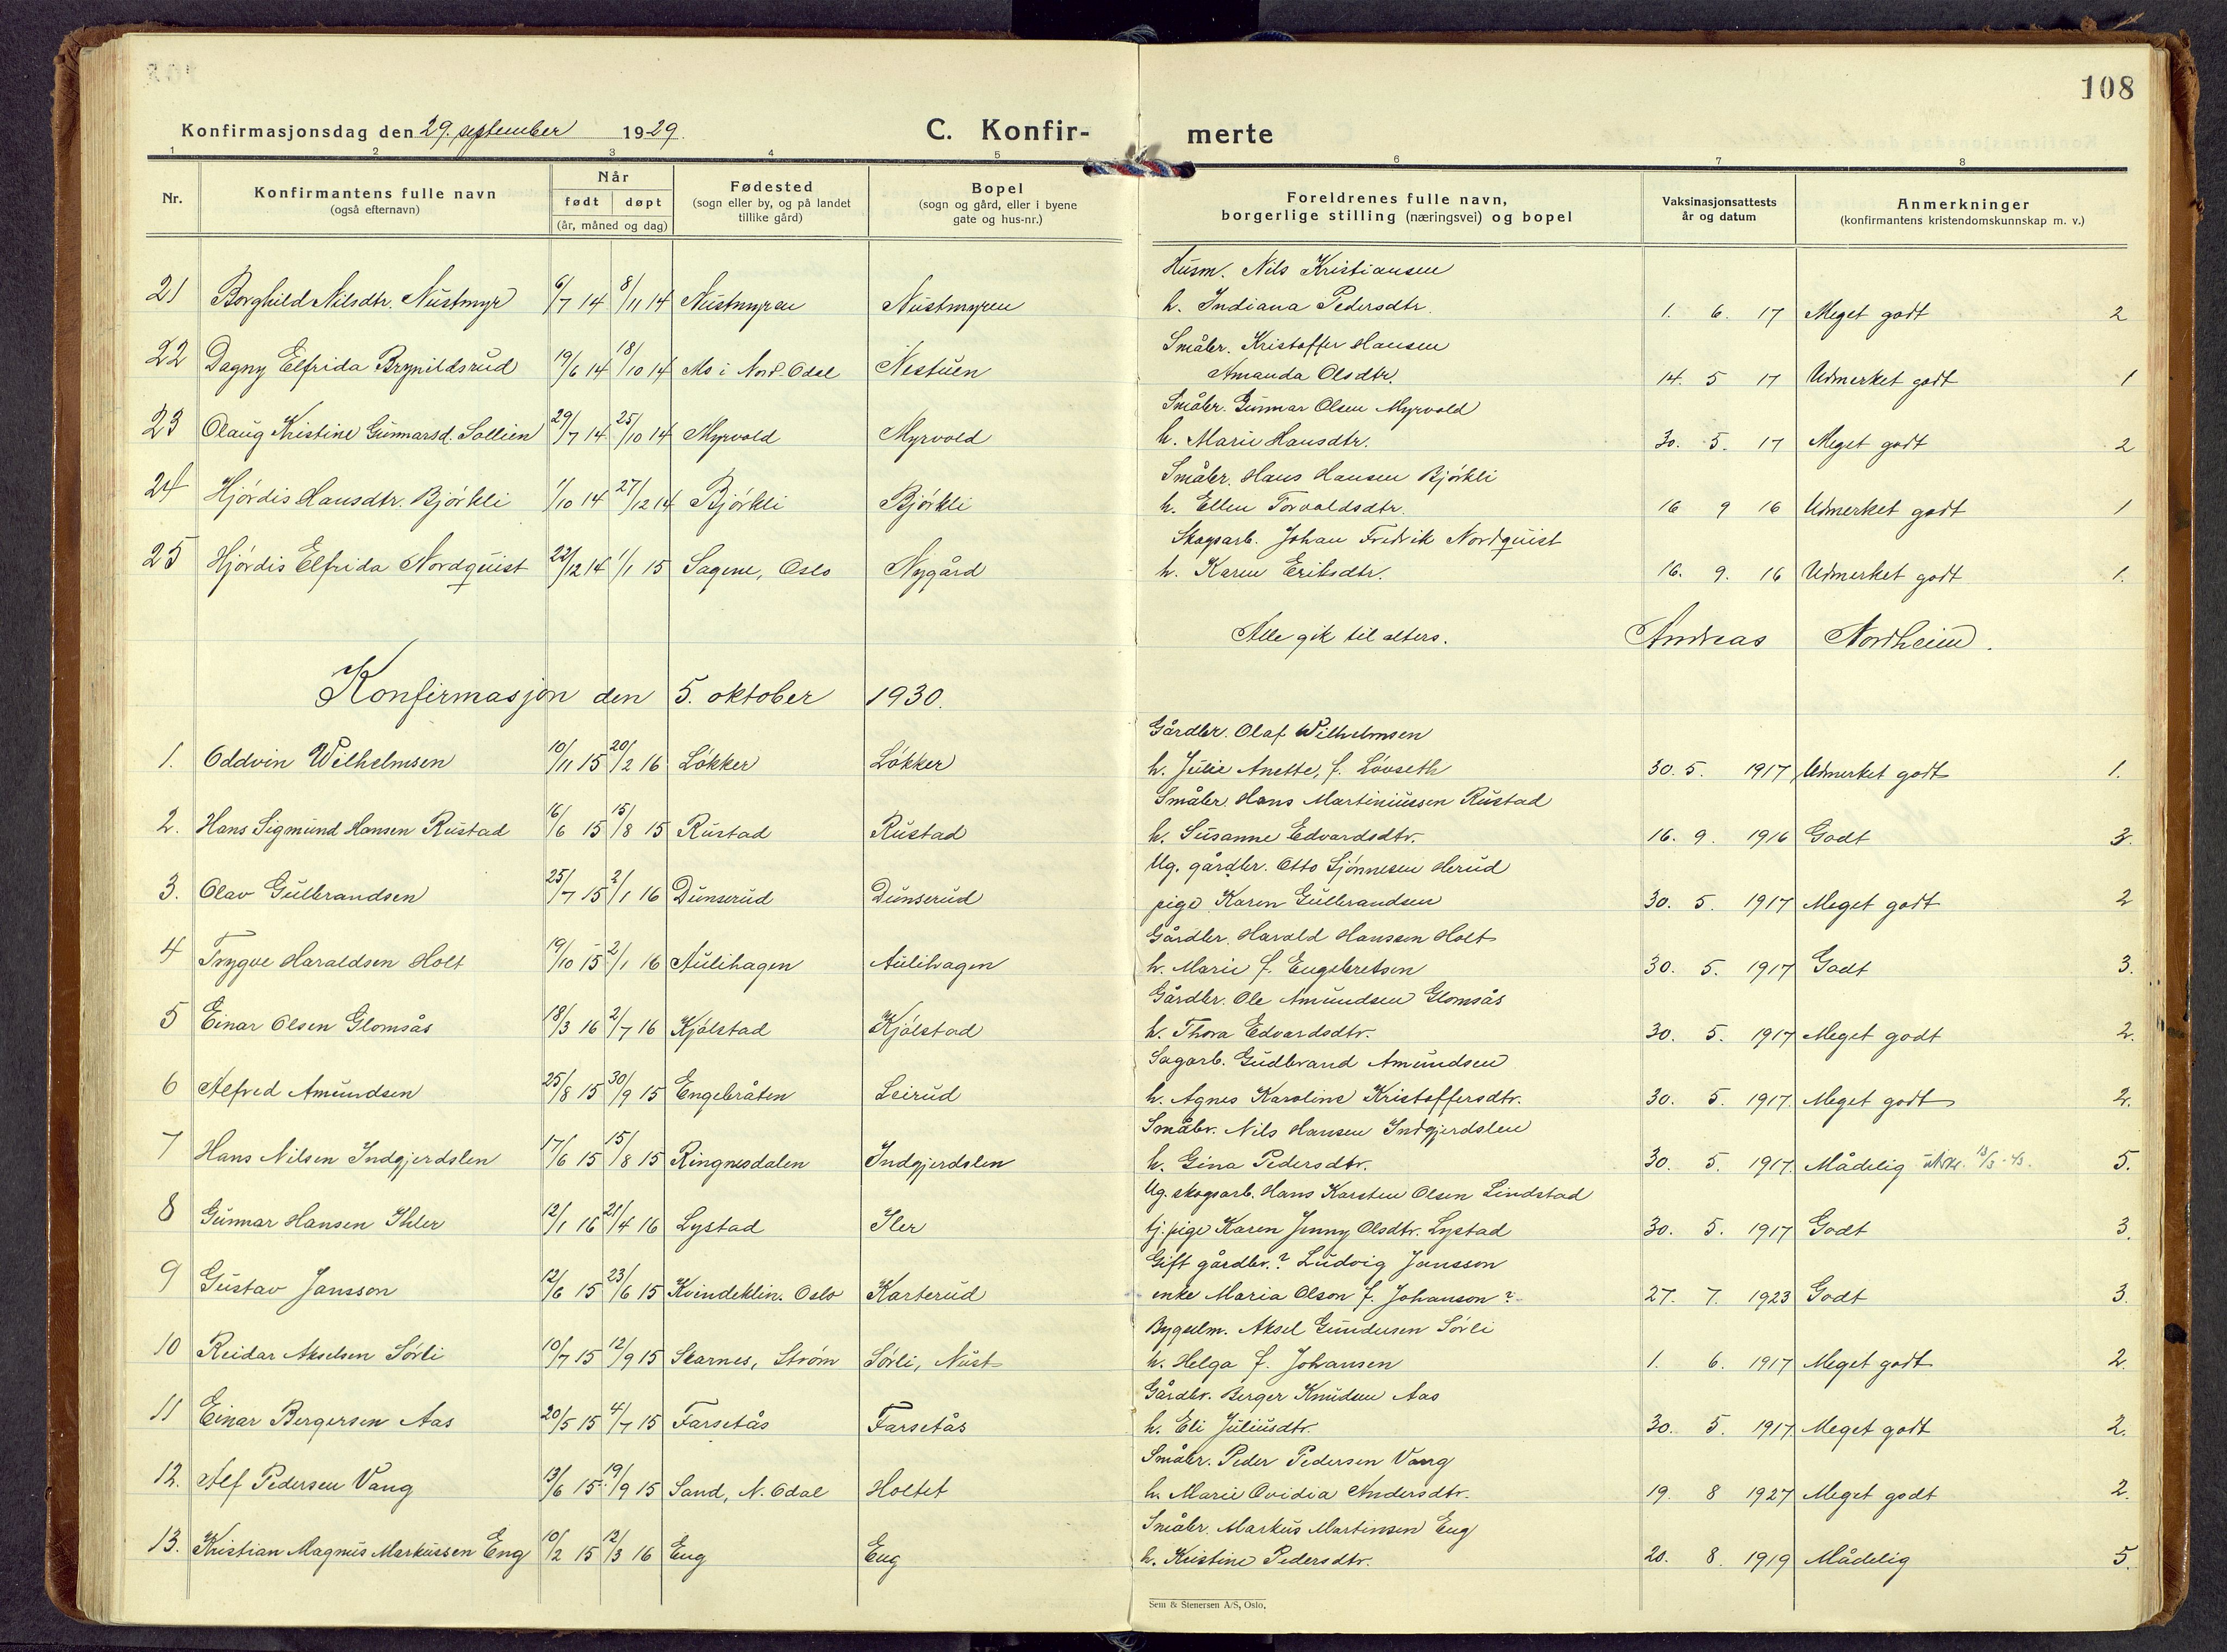 108
Konfirmasjonsdag den 29. september 1929.
C. Konfir-
merte
1 2 3 4 5 6 7 8
Nr.
Konfirmantens fulle navn
(også efternavn)
Når
født døpt
(år, måned og dag)
Fødested
(sogn eller by, og på landet
tillike gård)
Bopel
(sogn og gård, eller i byene
gate og hus-nr.)
Foreldrenes fulle navn,
borgerlige stilling (næringsvei) og bopel
Vaksinasjonsattests
år og datum
Anmerkninger
(konfirmantens kristendomskunnskap m. v.)
Husm. Nils Kristiansen
21 Borghild Nilsdtr. Nustmyr 6/7 14 8/11 14 Nustmyren Nustmyren h. Indiana Pedersdtr. 1. 6. 17 Meget godt 2
Småbr. Kristoffer Hansen
22 Dagny Elfrida Brynildsrud 19/6 14 18/10 14 Mo i Nord-Odal Nestuen Amanda Olsdtr. 14. 5 17 Udmerket godt 1
Småbr. Gunnar Olsen Myrvold
23 Olaug Kristine Gunnarsd. Sollien 29/7 14 25/10 14 Myrvold Myrvold h. Marie Hansdtr. 30. 5. 17 Meget godt 2
Småbr. Hans Hansen Bjørkli
24 Hjørdis Hansdtr. Bjørkli 1/10 14 27/12 14 Bjørkli Bjørkli h. Ellen Torvaldsdtr. 16 9 16 Udmerket godt 1
Skogsarb. Johan Fredrik Nordquist
25 Hjørdis Elfrida Nordquist 22/12 14 1/1 15 Sagene, Oslo Nygård h. Karen Eriksdtr. 16. 9. 16 Udmerket godt 1.
Alle gik til alters. Andreas Nordheim.
Konfirmasjon den 5. oktober 1930.
Gårdbr. Olaf Wilhelmsen
1. Oddvin Wilhelmsen 10/11 15 20/2 16 Løkker Løkker h. Julie Anette, f. Løvseth 30. 5. 1917 Udmerket godt 1.
Småbr. Hans Martiniussen Rustad
2. Hans Sigmund Hansen Rustad 16/6 15 15/8 15 Rustad Rustad h. Susanne Edvardsdtr. 16. 9. 1916 Godt 3.
Ug. gårdbr. Otto Sjønnesen Herud
3. Olav Gulbrandsen 25/7 15 2/1 16 Dunserud Dunserud pige Karen Gulbrandsen 30. 5. 1917 Meget godt 2
Gårdbr. Harald Hansen Holt
4 Trygve Haraldsen Holt 19/10 15 2/1 16 Aulihagen Aulihagen h. Marie f. Engebretsen 30. 5. 1917 Godt 3.
Gårdbr. Ole Amundsen Glomsås
5 Einar Olsen Glomsås 18/3 16 2/7 16 Kjølstad Kjølstad h. Thora Edvardsdtr. 30. 5. 1917 Meget godt 2.
Sagarb. Gudbrand Amundsen
6 Alfred Amundsen 25/8 15 30/9 15 Engebråten Leirud h. Agnes Karoline Kristoffersdtr. 30. 5. 1917. Meget godt 2.
Småbr. Nils Hansen Indgjerdslen
7 Hans Nilsen Indgjerdslen 17/6 15 15/8 15 Ringnesdalen Indgjerdslen h. Gina Pedersdtr. 30. 5. 1917. Mådelig 5.
Ug. skogsarb. Hans Karsten Olsen Lindstad
8 Gunnar Hansen Ihler 12/1 16 21/4 16 Lystad Iler tj. pige Karen Jenny Olsdtr. Lystad 30. 5. 1917 Godt 3.
Gift gårdbr.? Ludvig Jansson
9 Gustav Jansson 12/6 15 23/6 15 Kvindeklin. Oslo Karterud enke Maria Olson f. Johanson? 27. 7. 1923 Godt 3.
Bygselm. Aksel Gundersen Sørli
10 Reidar Akselsen Sørli 10/7 15 12/9 15 Skarnes, Strøm Sørli, Nust h. Helga f. Johansen 1. 6. 1917 Meget godt 2.
Gårdbr. Berger Knudsen Aas
11 Einar Bergersen Aas 20/5 15 4/7 15 Farsetås Farsetås h. Eli Juliusdtr. 30. 5. 1917. Meget godt 2.
Småbr. Peder Pedersen Vang
12. Alf Pedersen Vang 13/6 15 19/9 15 Sand, N. Odal Holtet h. Marie Ovidia Andersdtr. 19. 8 1927 Meget godt 2.
Småbr. Markus Martinsen Eng
13. Kristian Magnus Markussen Eng 10/2 15 12/3 16 Eng Eng h. Kristine Pedersdtr. 20. 8. 1919 Mådelig 5.
Sem & Stenersen A/S, Oslo.